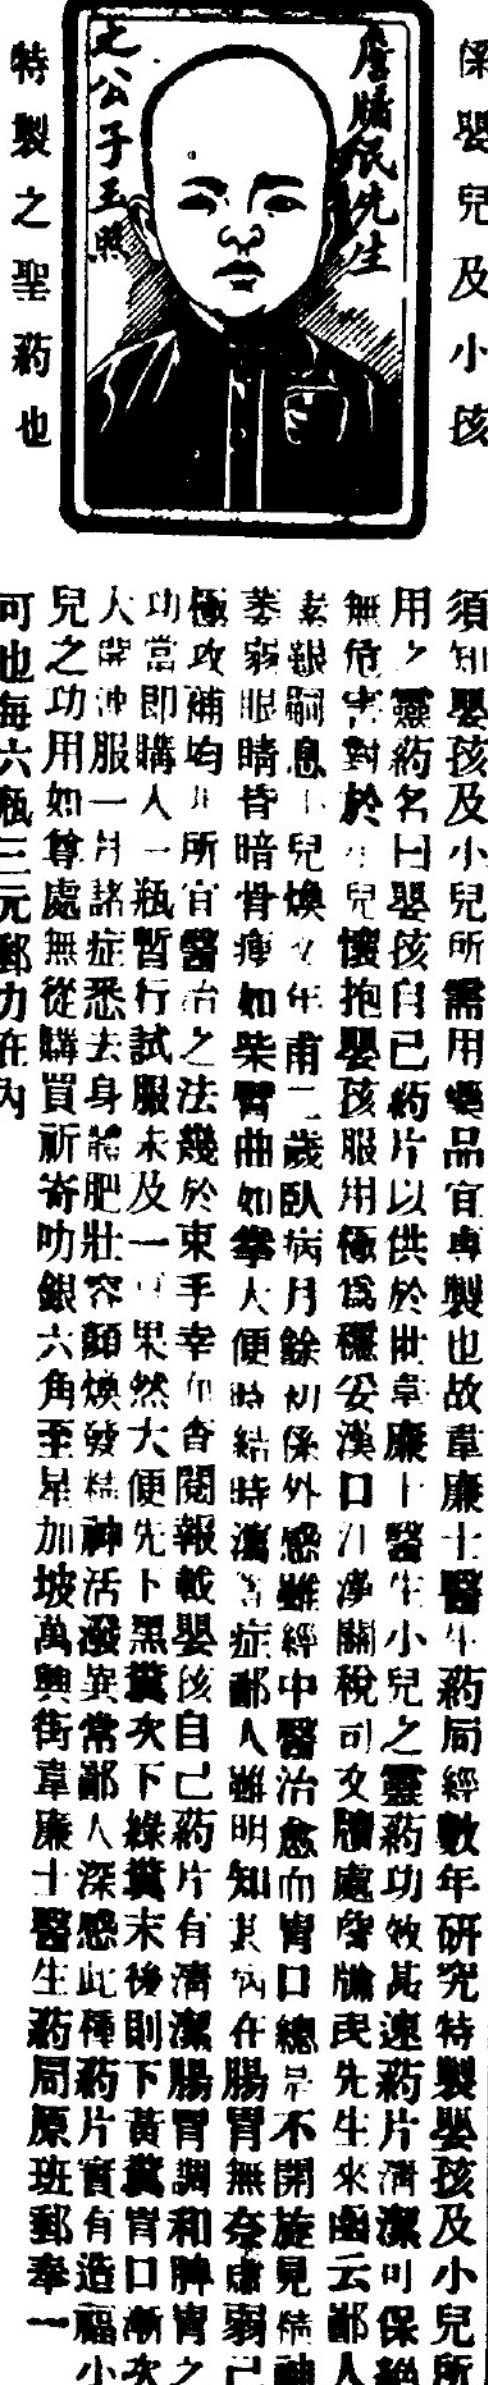 係嬰兒及小孩
特製之聖药也
詹牖民先生
之公子玉照
須知嬰孩及小兒所需用藥品宜専製也故韋廉士醫生药局經數年研究特製嬰孩及小兒所
用之靈药名曰嬰孩自己药片以供於世韋廉士醫生小兒之靈药功效甚速药片清潔可保絕
無危害對於小兒懷抱嬰孩服用極爲穩妥漢口江漢關稅司文牘處詹牖民先生來函云鄙人
素艱嗣息小兒煥文年甫二歲臥病月餘初係外感雖經中醫治愈而胃口總是不開旋見精神
萎弱眼睛昏暗骨瘦如柴臂曲如拳大便時結時瀉等症鄙人雖明知其病在腸胃無奈虛弱已
極攻補均非所宜醫治之法幾於束手幸而查閱報載嬰孩自己药片有清潔腸胃調和脾胃之
功當即購人一瓶暫行試服未及一日果然大便先下黑糞次下綠糞末後則下黃糞胃口漸次
大開沖服一月諸症悉去身體肥壯容顏煥發精神活潑異常鄙人深感此種药片實有造福小
兒之功用如尊處無從購買祈寄叻銀六角至星加坡萬興街韋廉士醫生药局原班郵奉一
可也每六瓶三元郵力在內